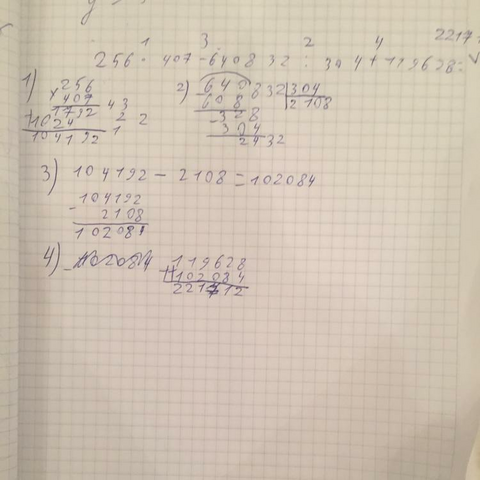 2217
1 3 2 4
256 · 407 - 640832 : 304 + 119628 =
1)
× 256
407
1792 43
+ 1024 2 2
104192 1
2) 640832 304
608 2108
- 328
304
2432
3) 104192 - 2108 = 102084
- 104192
2108
102084
4)
119628
+ 102084
221712